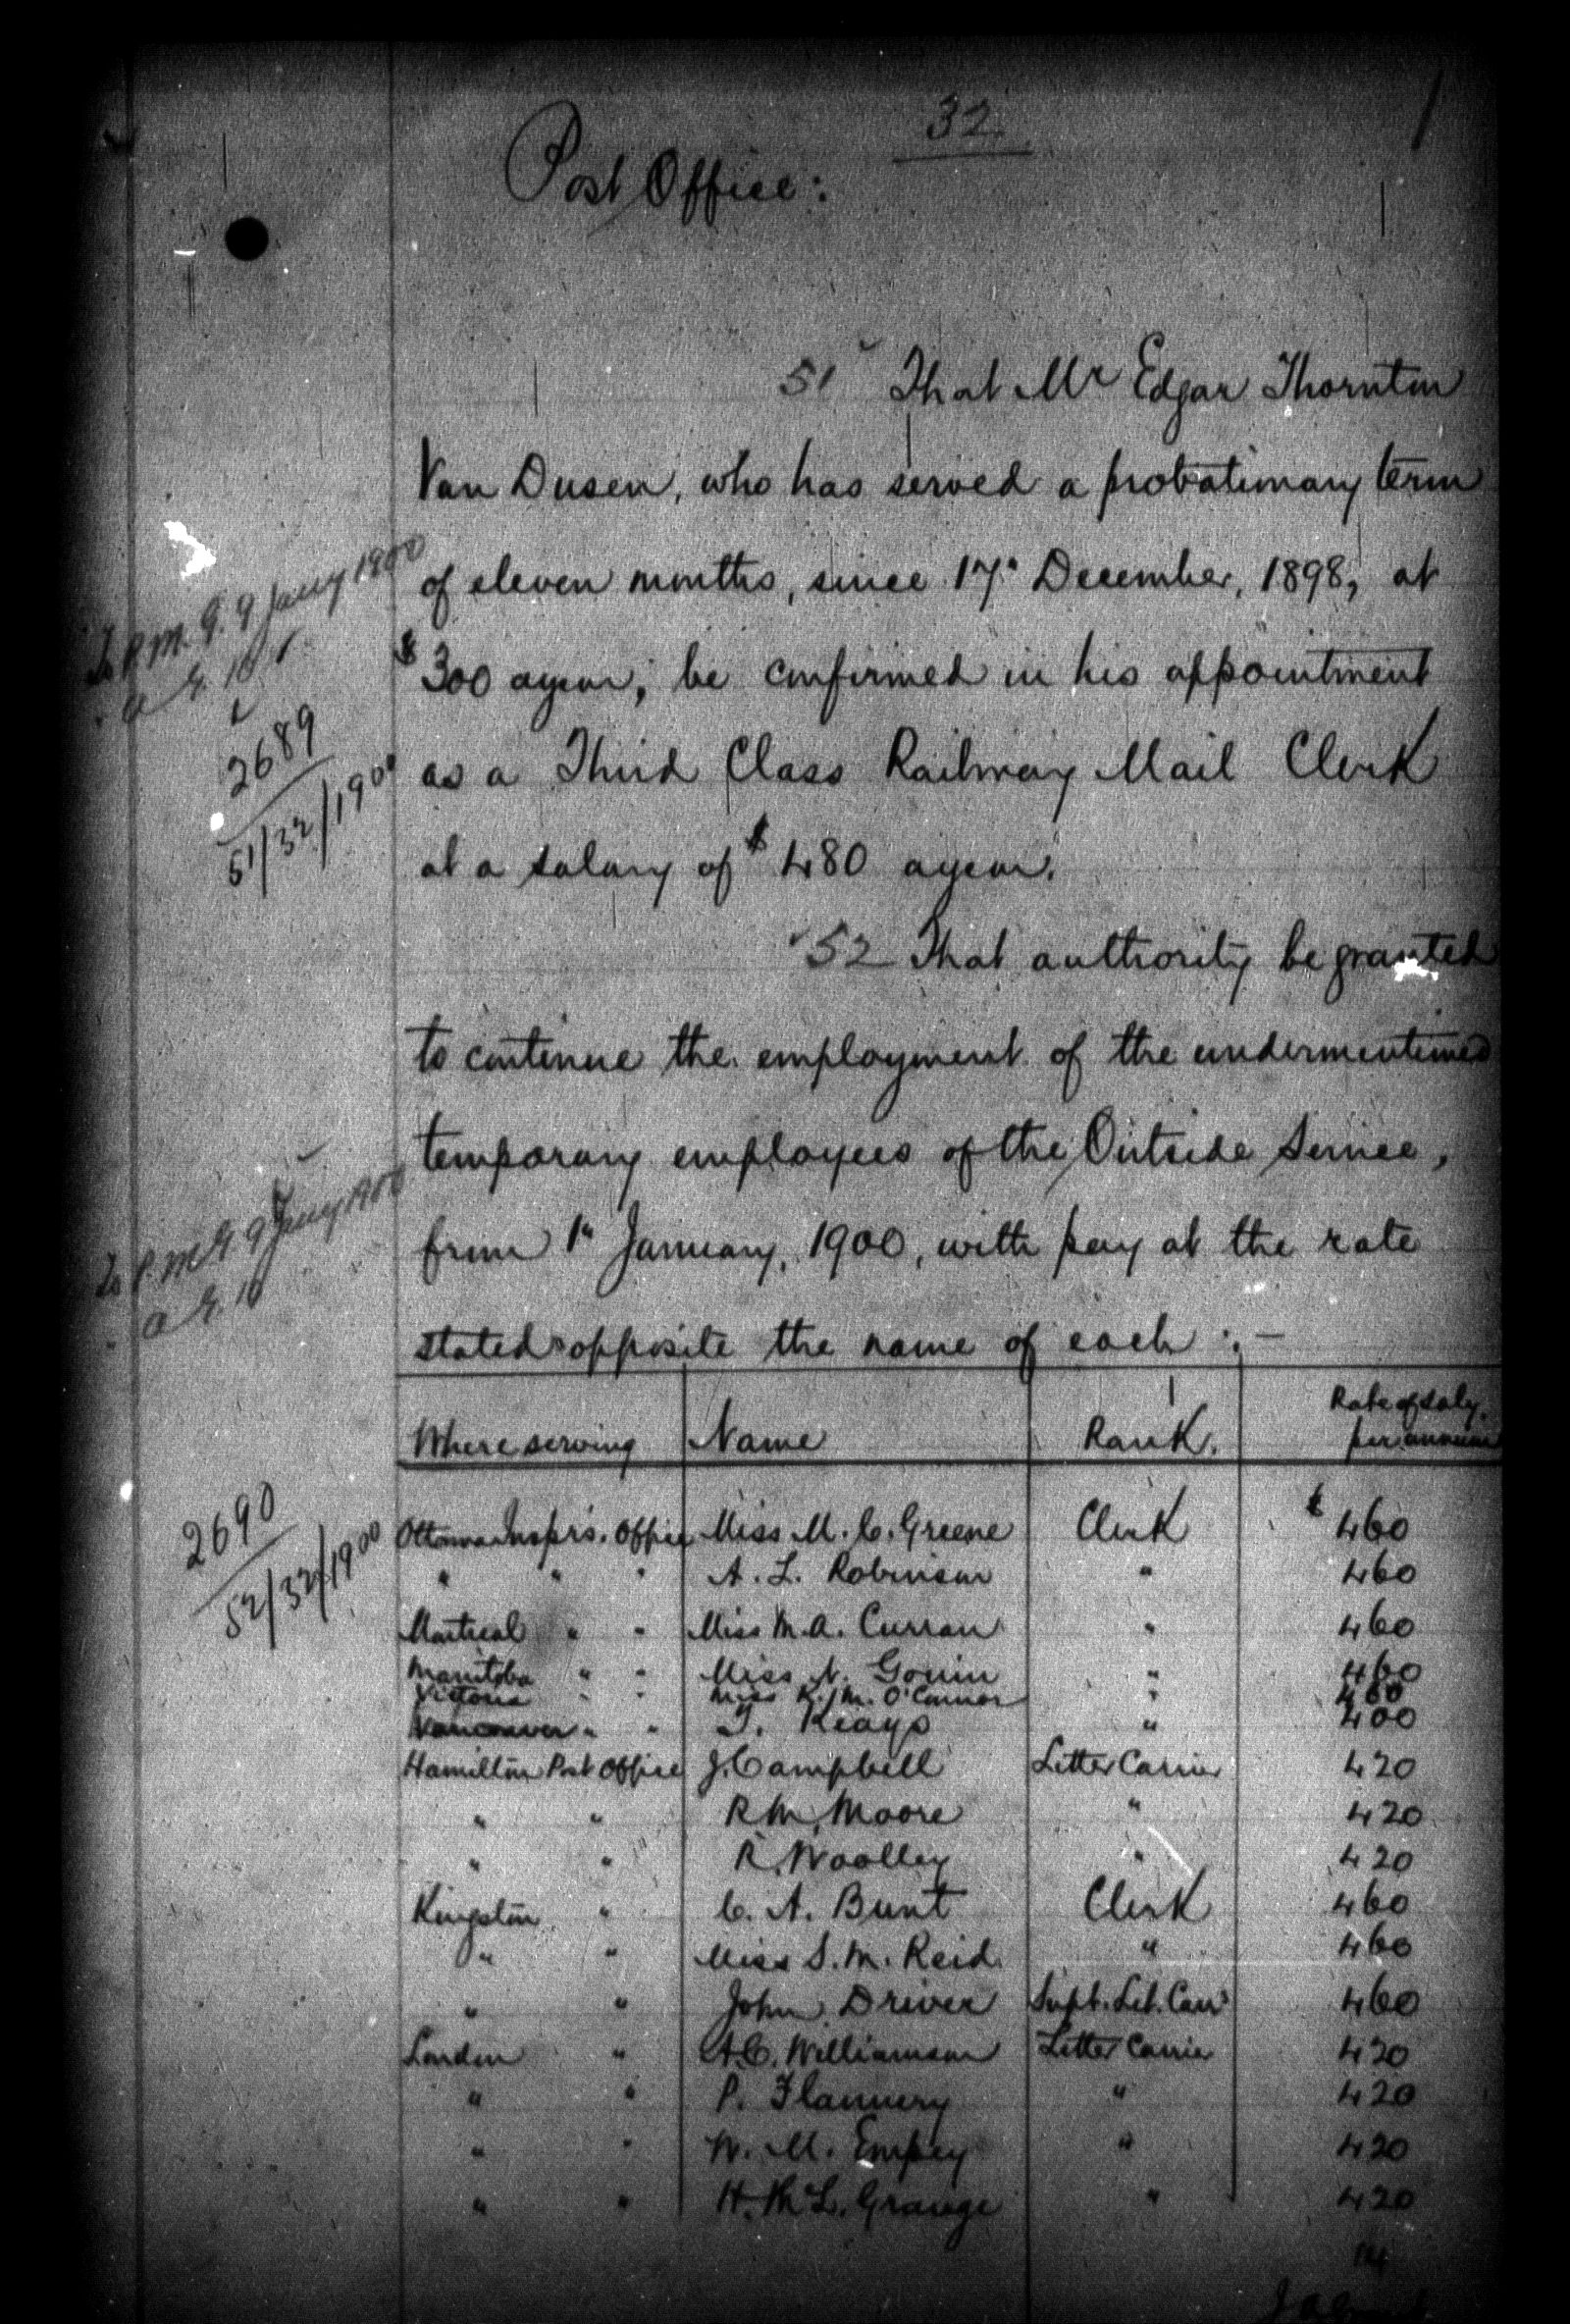 32
Post Office:
51 That Mr Edgar Thornton
Van Dusen, who has served a probationary term
of eleven months, since 17" December, 1898, at
$300 a year, be confirmed in his appointment
as a Third Class Railway Mail Clerk
at a salary of $480 a year.
To P.M.G. 9 Jany 1900
" A. G. 10
2689
51/32/1900
52 That authority be granted
to continue the employment of the undermentioned
temporary employees of the Outside Service,
from 1" January, 1900, with pay at the rate
stated opposite the name of each :-
To P.M.G. 9 Jany 1900
" A. G. 10
2690
52/32/1900
Where serving Name Rank. Rate of saly. per annum
Ottawa Inspr's. Office Miss M. C. Greene Clerk $460
" " " A. L. Robinson " 460
Montreal " " Miss M. A. Curran " 460
Manitoba " " Miss N. Gouin " 460
Victoria " " Miss K. M. O'Connor " 460
Vancouver " " T. Keays " 400
Hamilton Post Office J. Campbell Letter Carrier 420
" " R. M. Moore " 420
" " R. Woolley " 420
Kingston " C. A. Bunt Clerk 460
" " Miss S. M. Reid " 460
" " John Driver Supt. Let. Carr 460
London " A. C. Williamson Letter Carrier 420
" " P. Flannery " 420
" " W. M. Empey " 420
" " Grange " 420